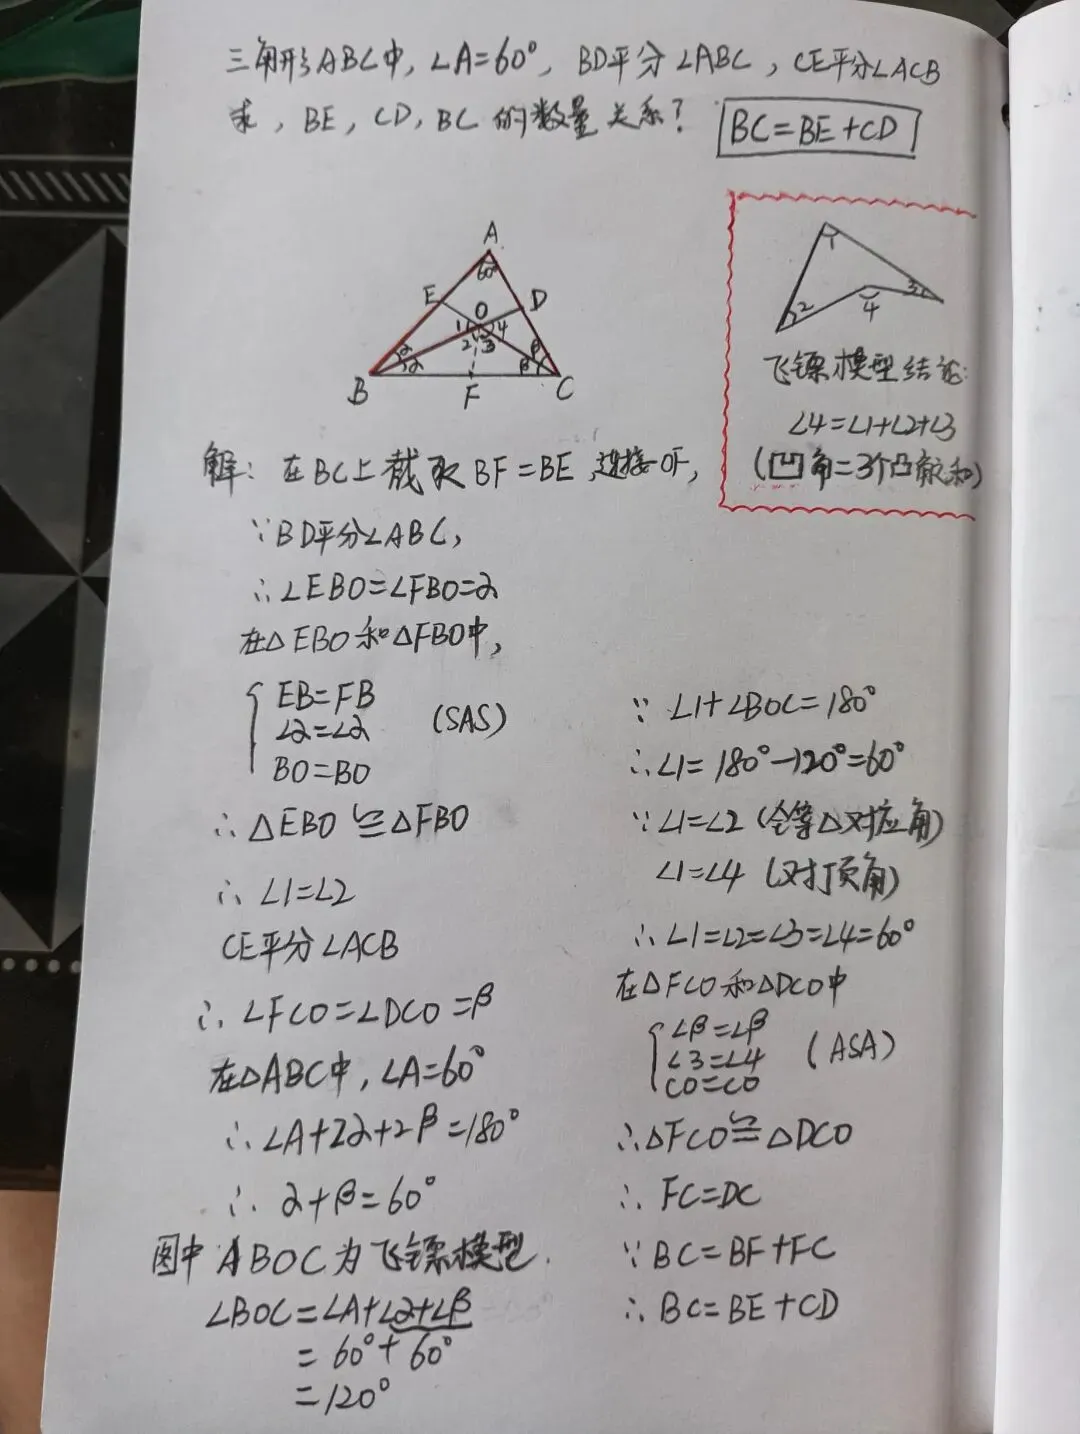 三角形ABC中,∠A=60°,BD平分∠ABC,CE平分∠ACB
求,BE,CD,BC的数量关系?
BC=BE+CD
A
60°
E
D
O
1
4
2
3
α
α
β
β
B
F
C
1
2
3
4
飞镖模型结论:
∠4=∠1+∠2+∠3
(凹角=3个凸角和)
解:在BC上截取BF=BE,连接OF,
∵BD平分∠ABC,
∴∠EBO=∠FBO=α
在△EBO和△FBO中,
EB=FB
∠α=∠α
(SAS)
BO=BO
∴△EBO≌△FBO
∴∠1=∠2
CE平分∠ACB
∴∠FCO=∠DCO=β
在△ABC中,∠A=60°
∴∠A+2α+2β=180°
∴α+β=60°
图中ABOC为飞镖模型.
∠BOC=∠A+∠α+∠β
=60°+60°
=120°
∵∠1+∠BOC=180°
∴∠1=180°-120°=60°
∵∠1=∠2(全等△对应角)
∠1=∠4(对顶角)
∴∠1=∠2=∠3=∠4=60°
在△FCO和△DCO中
∠β=∠β
∠3=∠4
(ASA)
CO=CO
∴△FCO≌△DCO
∴FC=DC
∵BC=BF+FC
∴BC=BE+CD